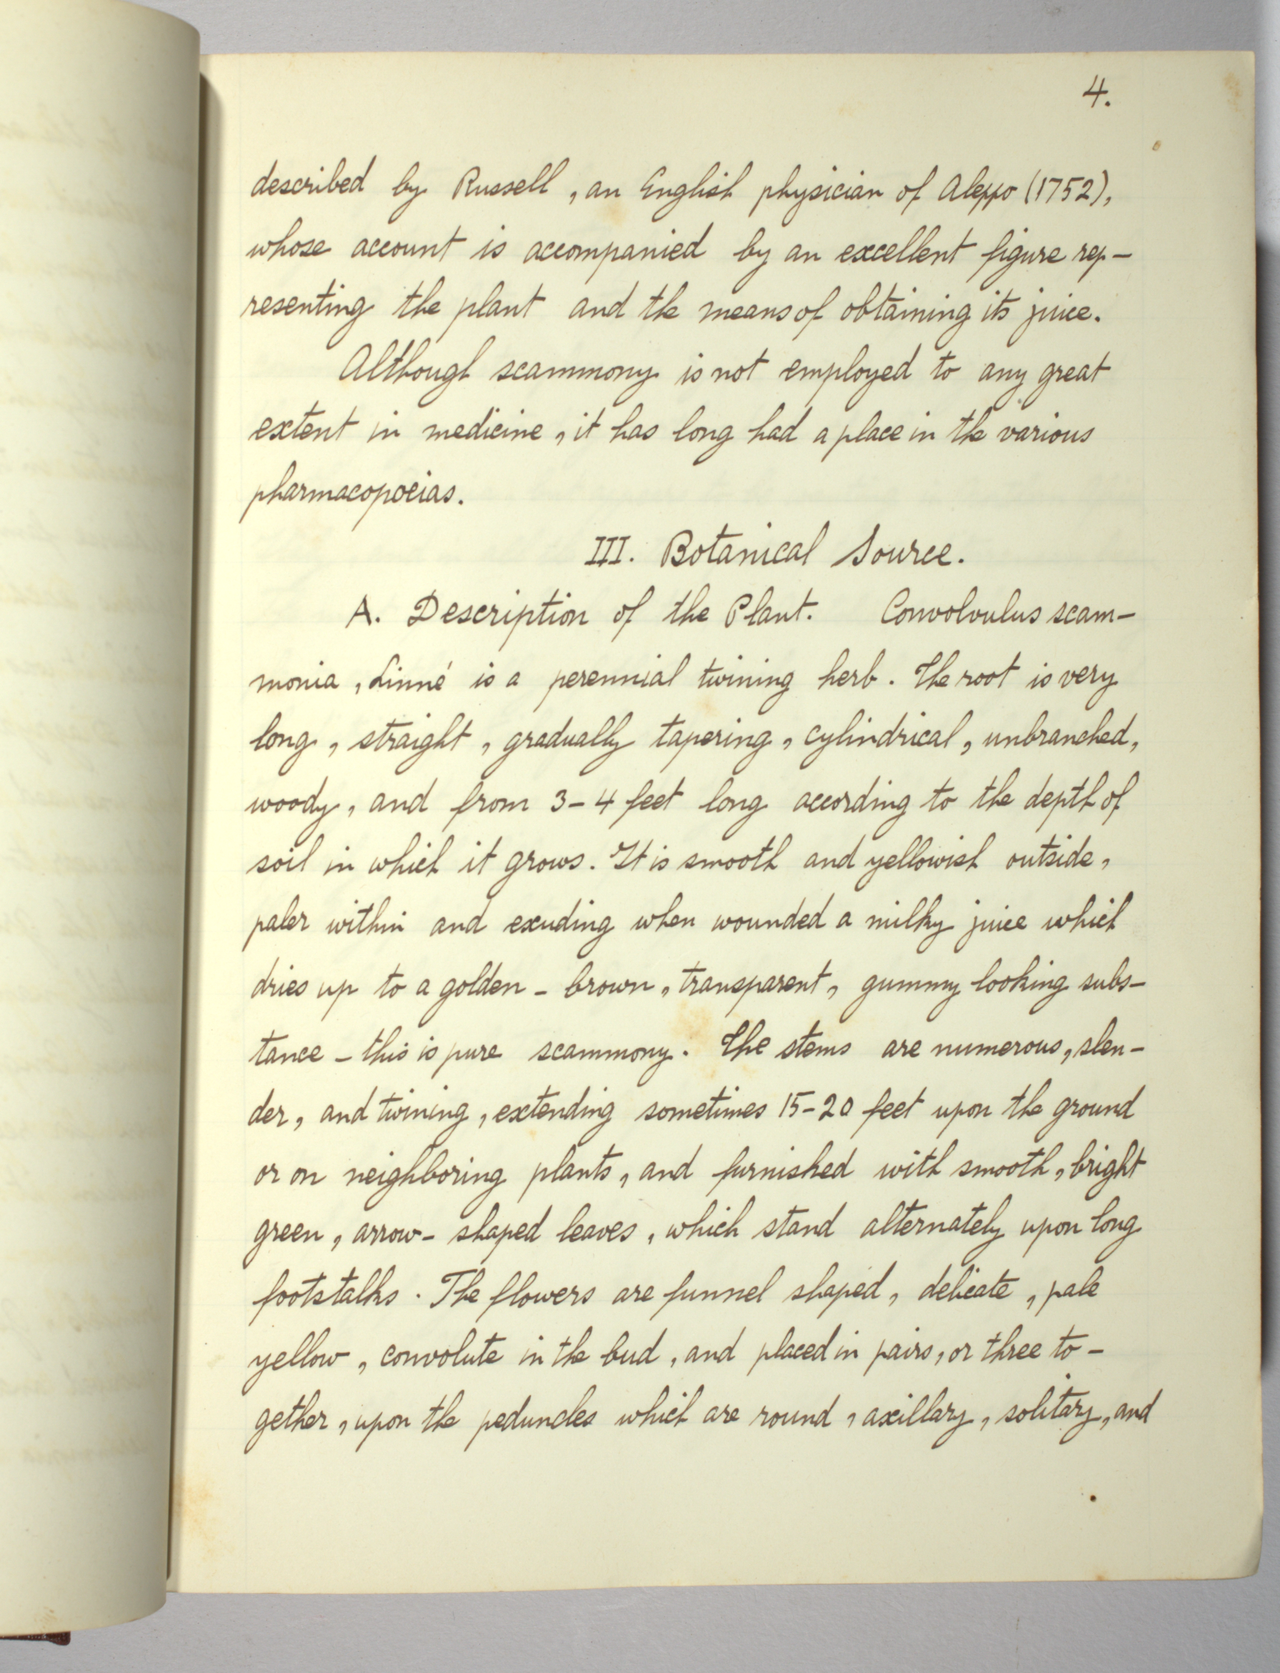 4.
described by Russell, an English physician of Aleppo (1752),
whose account is accompanied by an excellent figure rep-
resenting the plant and the means of obtaining its juice.
Although scammony is not employed to any great
extent in medicine, it has long had a place in the various
pharmacopoeias.
III. Botanical Source.
A. Description of the Plant. Convolvulus scam-
monia, Linné is a perennial twining herb. The root is very
long, straight, gradually tapering, cylindrical, unbranched,
woody, and from 3-4 feet long according to the depth of
soil in which it grows. It is smooth and yellowish outside,
paler within and exuding when wounded a milky juice which
dries up to a golden-brown, transparent, gummy looking subs-
tance - this is pure scammony. The stems are numerous, slen-
der, and twining, extending sometimes 15-20 feet upon the ground
or on neighboring plants, and furnished with smooth, bright
green, arrow-shaped leaves, which stand alternately upon long
footstalks. The flowers are funnel shaped, delicate, pale
yellow, convolute in the bud, and placed in pairs, or three to-
gether, upon the peduncles which are round, axillary, solitary, and